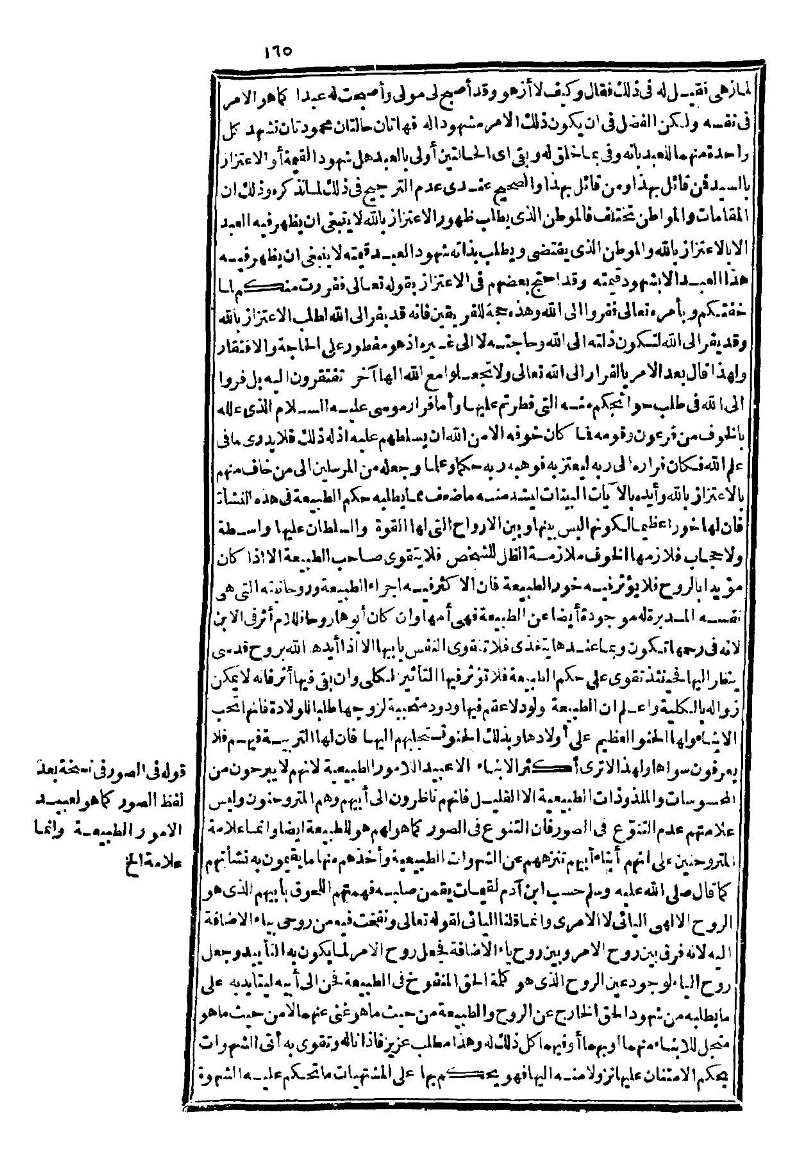 ١٦٥
لمازهى فقيل له فى ذلك فقال وكيف لا أزهو وقد أصبح لى مولى وأصبحت له عبدا كما هو الامر
فى نفسه ولكن الفضل فى ان يكون ذلك الامر مشهودا له فهاتان حالتان محمودتان تشهد كل
واحدة منهما للعبد بانه وفى بما خلق له وبقى اى الحالتين أولى بالعبد هل شهود القيمة أو الاعتزاز
بالسيد فمن قائل بهذا ومن قائل بهذا والصحيح عندى عدم الترجيح فى ذلك لما نذكره وذلك ان
المقامات والمواطن تختلف فالموطن الذى يطلب ظهور الاعتزاز بالله لا ينبغى ان يظهر فيه العبد
الا بالاعتزاز بالله والموطن الذى يقتضى ويطلب بذاته شهود العبد قيمته لا ينبغى ان يظهر فيه
هذا العبد الا بشهود قيمته وقد احتج بعضهم فى الاعتزاز بقوله تعالى ففررت منكم لما
خفتكم وبأمره تعالى ففروا الى الله وهذه حجة للفريقين فانه قد يفر الى الله لطلب الاعتزاز بالله
وقد يفر الى الله لتكون ذلته الى الله وحاجته لا الى غيره اذ هو مفطور على الحاجة والافتقار
ولهذا قال بعد الامر بالفرار الى الله تعالى ولا تجعلوا مع الله الها آخر تفتقرون اليه بل فروا
الى الله فى طلب حوائجكم منه التى فطرتم عليها وأما فرار موسى عليه السلام الذى علله
بالخوف من فرعون وقومه فما كان خوفه الا من الله ان يسلطهم عليه اذ له ذلك فلا يدرى ما فى
علم الله فكان فراره الى ربه ليعتز به فوهبه ربه حكما وعلما وجعله من المرسلين الى من خاف منهم
بالاعتزاز بالله وأيده بالآيات البينات ليشد منه ما ضعف مما يطلبه حكم الطبيعة فى هذه النشأة
فان لها خورا عظيما لكونها ليس بينها وبين الارواح التى لها القوة والسلطان عليها واسطة
ولا حجاب فلازمها الخوف ملازمة الظل للشخص فلا يتقوى صاحب الطبيعة الا اذا كان
مؤيدا بالروح فلا يؤثر فيه خور الطبيعة فان الاكثر فيه اجراء الطبيعة وروحانيته التى هى
نفسه المدبرة له موجودة أيضا عن الطبيعة فهى أمها وان كان أبوها روحا فللام أثر فى الابن
لانه فى رحمها تكون وبما عندها يتغذى فلا تتقوى النفس بابيها الا اذا أيدها الله بروح قدسى
ينظر اليها فحينئذ تقوى على حكم الطبيعة فلا تؤثر فيها التأثير الكلى وان بقى فيها أثر فانه لا يمكن
زواله بالكلية واعلم ان الطبيعة ولود لا عقم فيها ودود متحببة لزوجها طلبا للولادة فانها تحب
الابناء ولها الحنو العظيم على أولادها وبذلك الحنو تستجلبهم اليها فان لها التربية فيهم فلا
يعرفون سواها ولهذا لا ترى أكثر الابناء الا عبيد للامور الطبيعية لانهم لا يبرحون من
المحسوسات والملذوذات الطبيعية الا القليل فانهم ناظرون الى أبيهم وهم المتروحنون وليس
علامتهم عدم التنوع فى الصور فان التنوع فى الصور كما هو لهم هو للطبيعة ايضا وانما علامة
المتروحنين على انهم أبناء أبيهم تنزههم عن الشهوات الطبيعية وأخذهم منها ما يقيمون به نشأتهم
كما قال صلى الله عليه وسلم حسب ابن آدم لقيمات يقمن صلبه فهمتهم اللحوق بأبيهم الذى هو
الروح الالهى اليائى لا الامرى وانما قلنا اليائى لقوله تعالى ونفخت فيه من روحى بياء الاضافة
اليه لانه فرق بين روح الامر وبين روح ياء الاضافة فجعل روح الامر لما يكون به التأييد وجعل
روح الياء لوجود عين الروح الذى هو كلمة الحق المنفوخ فى الطبيعة فحن الى أبيه ليتأيد به على
ما يطلبه من شهود الحق الخارج عن الروح والطبيعة من حيث ما هو غنى عنهما لا من حيث ما هو
متجل للابناء منهما أو بهما أو فيهما كل ذلك له وهذا مطلب عزيز فاذا ناله وتقوى به أتى الشهوات
بحكم الامتنان عليها نزولا منه اليها فهو يحكم بها على المشتهيات ما تحكم عليه الشهوة
قوله فى الصور فى نسخة بعد
لفظ الصور كما هو لعبيد
الامور الطبيعة وانما
علامة الخ